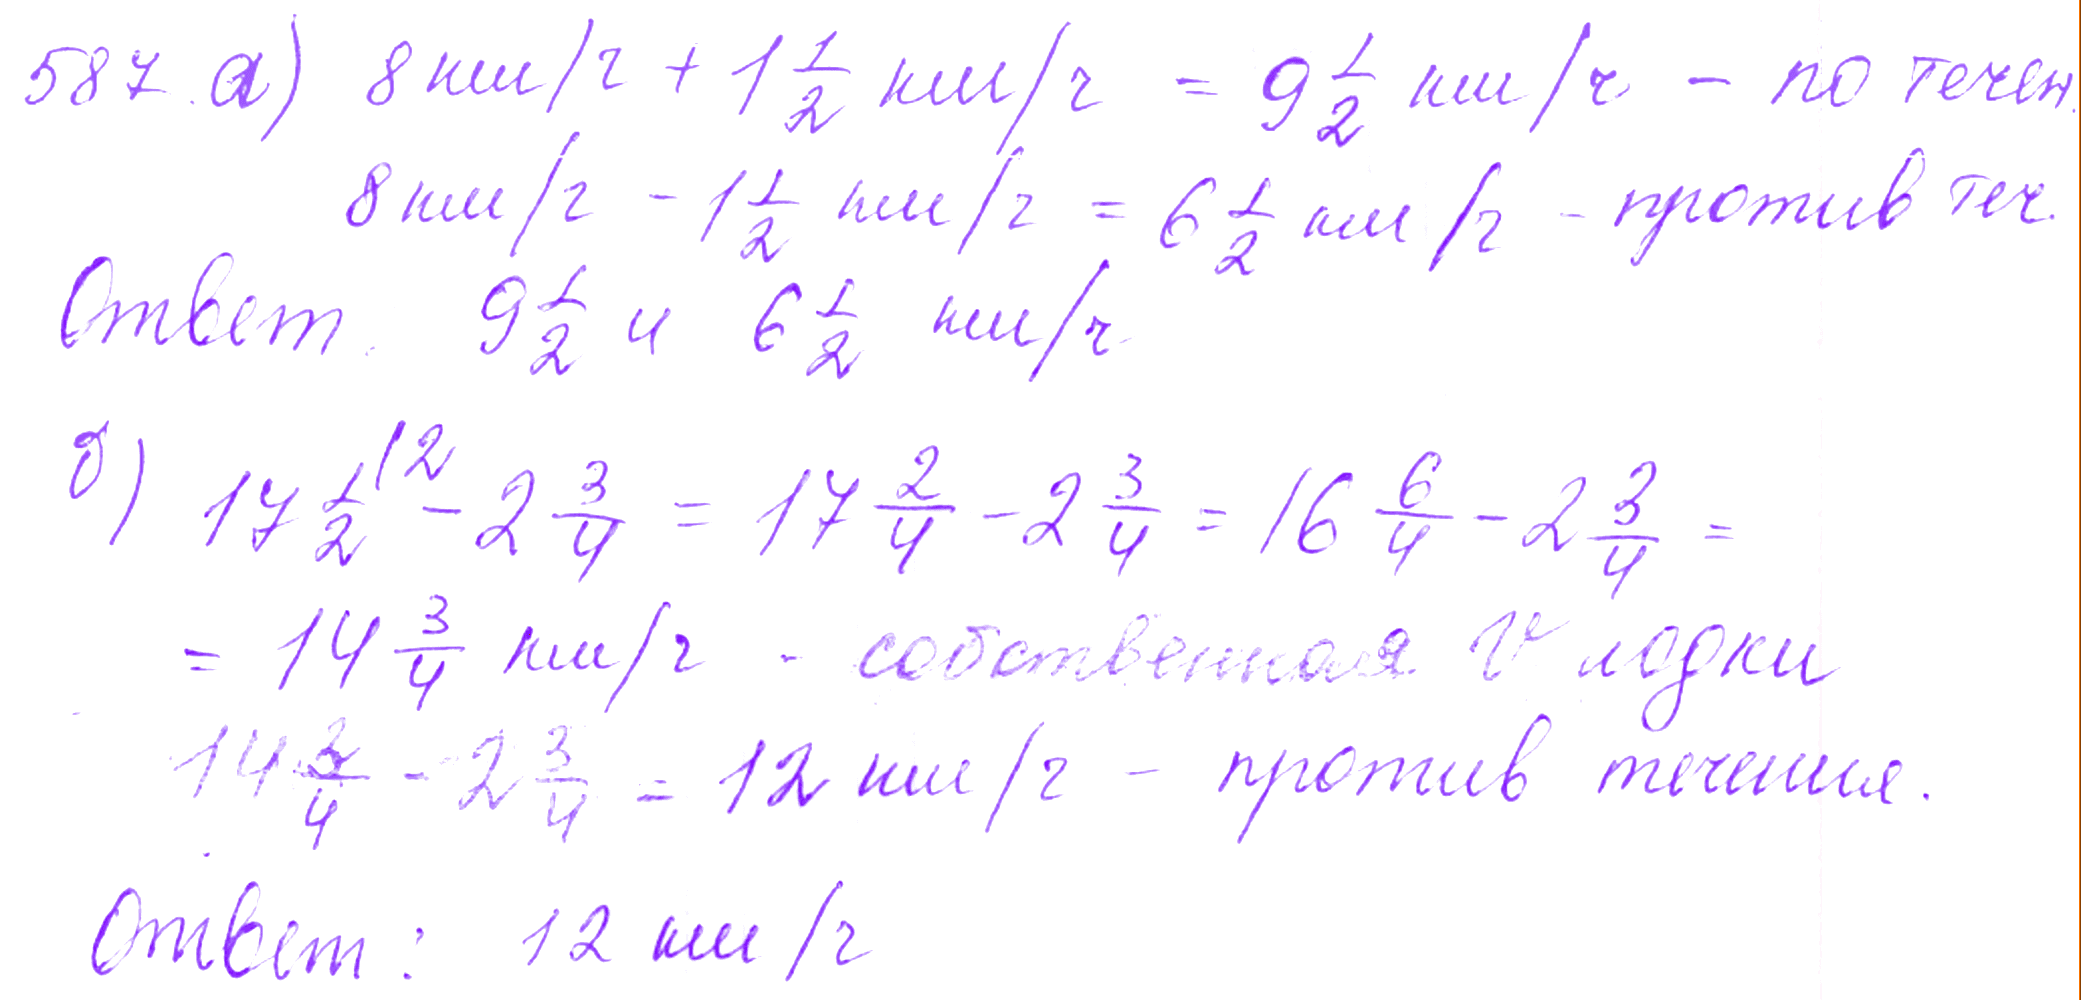 587. а) 8 км/ч + 1 1/2 км/ч = 9 1/2 км/ч - по течен.
8 км/ч - 1 1/2 км/ч = 6 1/2 км/ч - против теч.
Ответ. 9 1/2 и 6 1/2 км/ч.
б) 17 1/2 |2 - 2 3/4 = 17 2/4 - 2 3/4 = 16 6/4 - 2 3/4 =
= 14 3/4 км/ч - собственная V лодки
14 3/4 - 2 3/4 = 12 км/ч - против течения.
Ответ: 12 км/ч